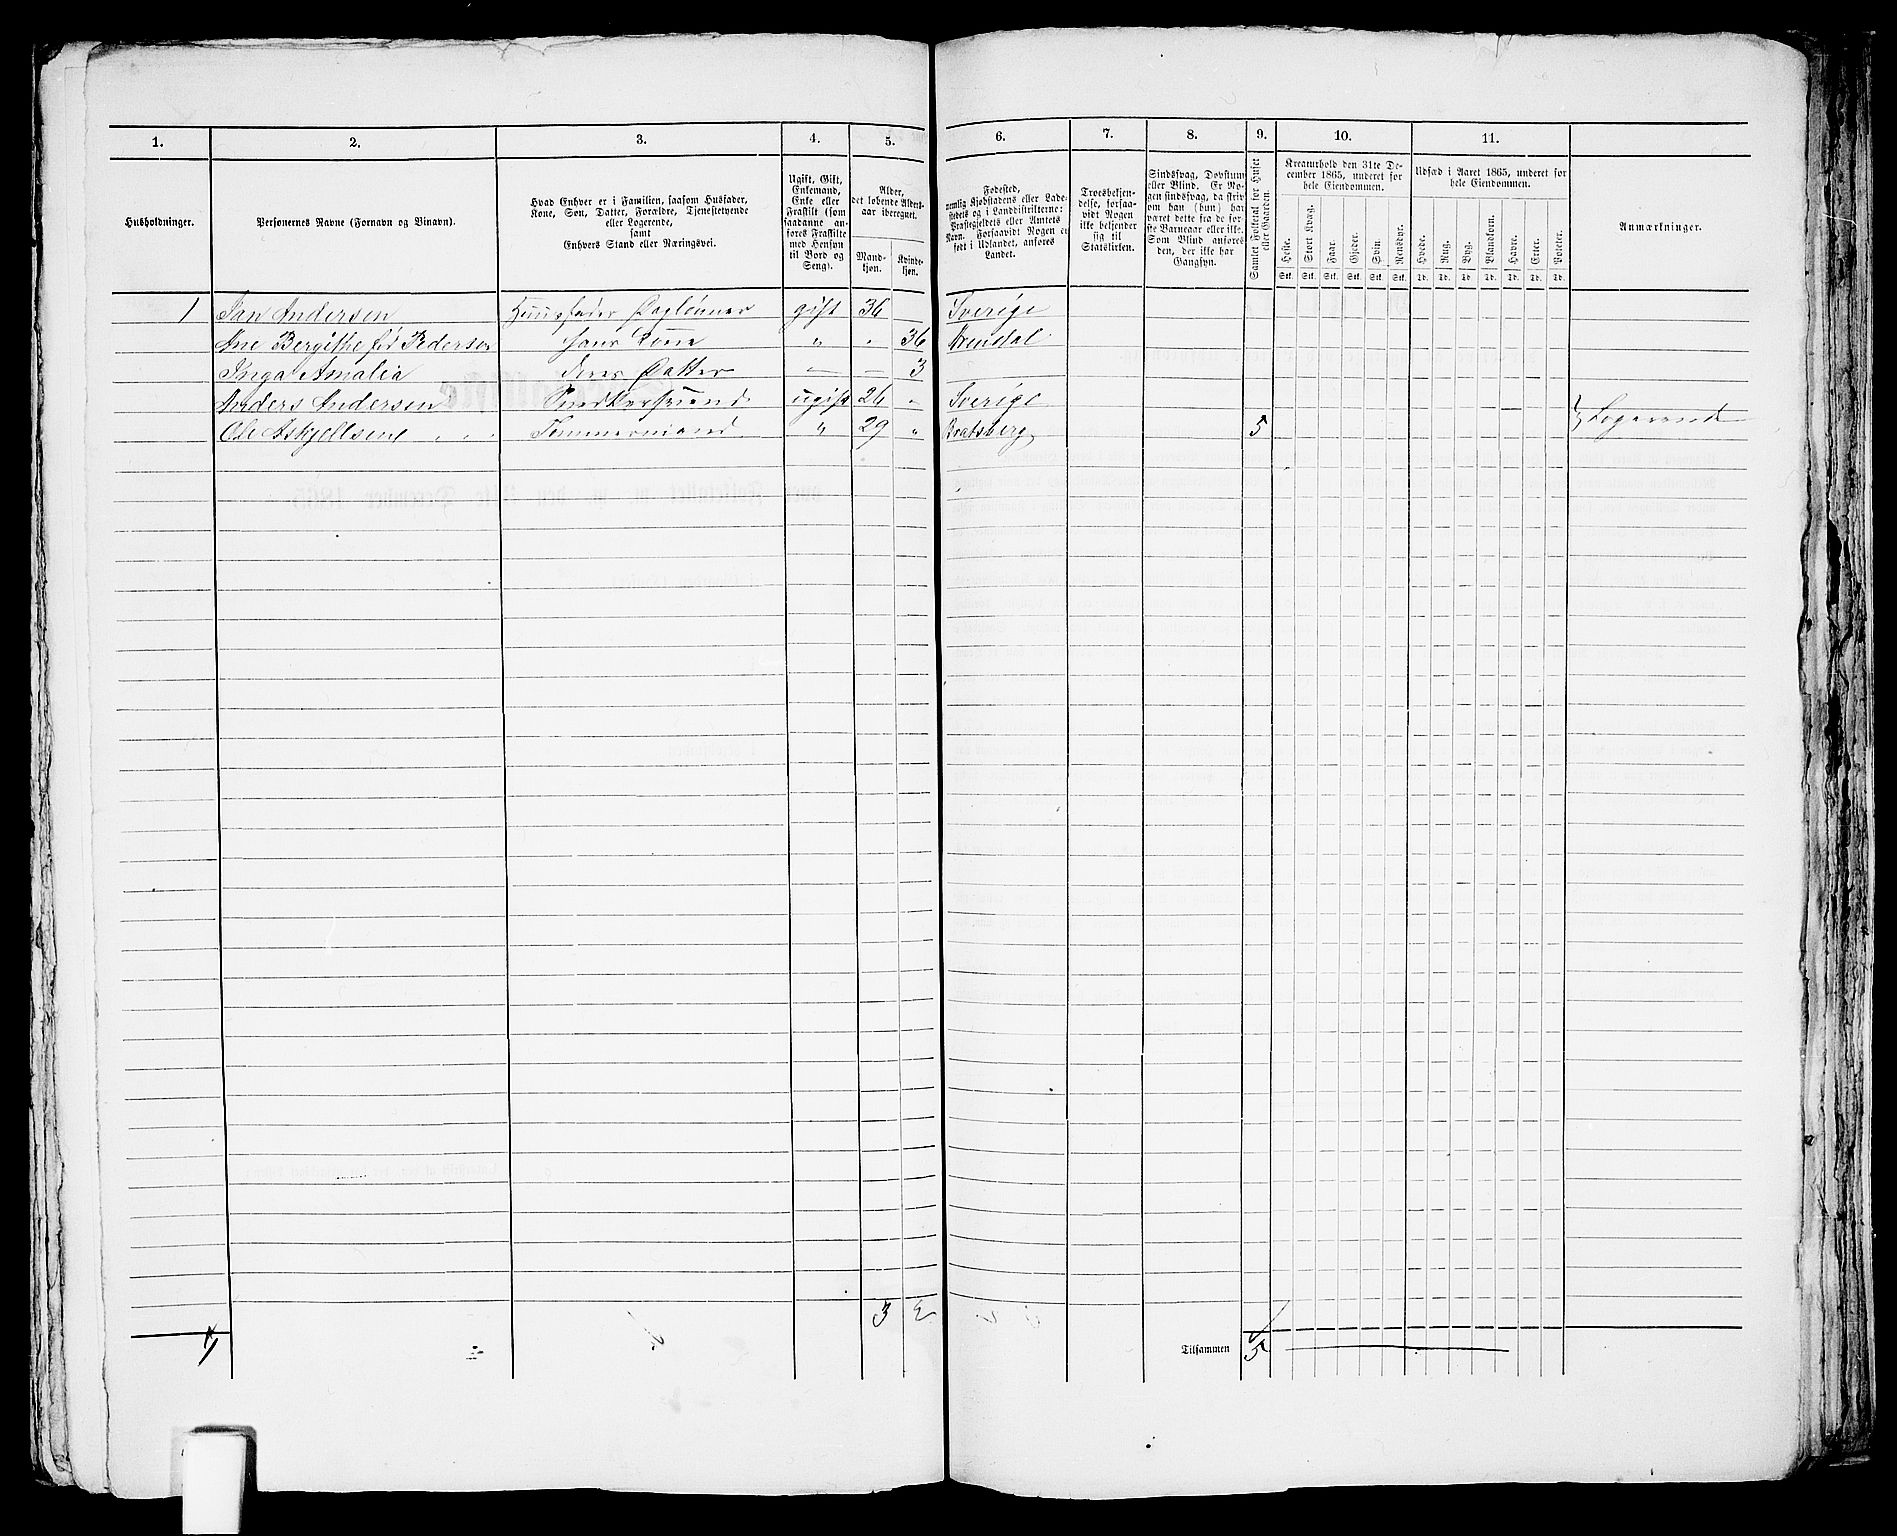 1. 2. 3. 4. 5. 6. 7. 8. 9. 10. 11.
Husholdninger.
Personernes Navne (Fornavn og Binavn).
Hvad Enhver er i Familien, saasom Husfader,
Kone, Søn, Datter, Forældre, Tjenestetyende
eller Logerende,
samt
Enhvers Stand eller Næringsvei.
Ugift, Gift,
Enkemand,
Enke eller
Fraskilt (som
saadanne an-
føres Fraskilte
med Hensyn
til Bord og
Seng).
Alder,
det løbende Alders-
aar iberegnet.
Mand-
kjøn.
Kvinde-
kjøn.
Fødested,
nemlig Kjøbstadens eller Lade-
stedets og i Landdistrikterne:
Præstegjeldets eller Amtets
Navn. Forsaavidt Nogen er
født i Udlandet, anføres
Landet.
Troesbekjen-
delse, forsaa-
vidt Nogen
ikke bekjender
sig til
Statskirken.
Sindssvag, Døvstum
eller Blind. Er No-
gen sindssvag, da skriv
om han (hun) har
været dette fra de før-
ste Barneaar eller ikke.
Som Blind anføres
den, der ikke har
Gangsyn.
Samlet Folketal for Huset
eller Gaarden.
Kreaturhold den 31te De-
cember 1865, underet for
hele Eiendommen.
Heste. Stort Kvæg. Faar. Gjeder. Svin. Rensdyr.
Stk. Stk. Stk. Stk. Stk. Stk.
Udsæd i Aaret 1865, underet for
hele Eiendommen.
Hvede. Rug. Byg. Blandkorn. Havre. Erter. Poteter.
Td. Td. Td. Td. Td. Td. Td.
Anmærkninger.
1 Jan Andersen Huusfader Daglønner gift 36 Sverige
Ane Bergithe fød Pedersen hans Kone " " 36 Arendal
Inga Amalia deres Datter — — 3
Anders Andersen ugift 26 " Sverige
Ole Askjellsen Tømmermand " 29 " Bratsberg 5 } Logerende
3 2
1 Tilsammen 5